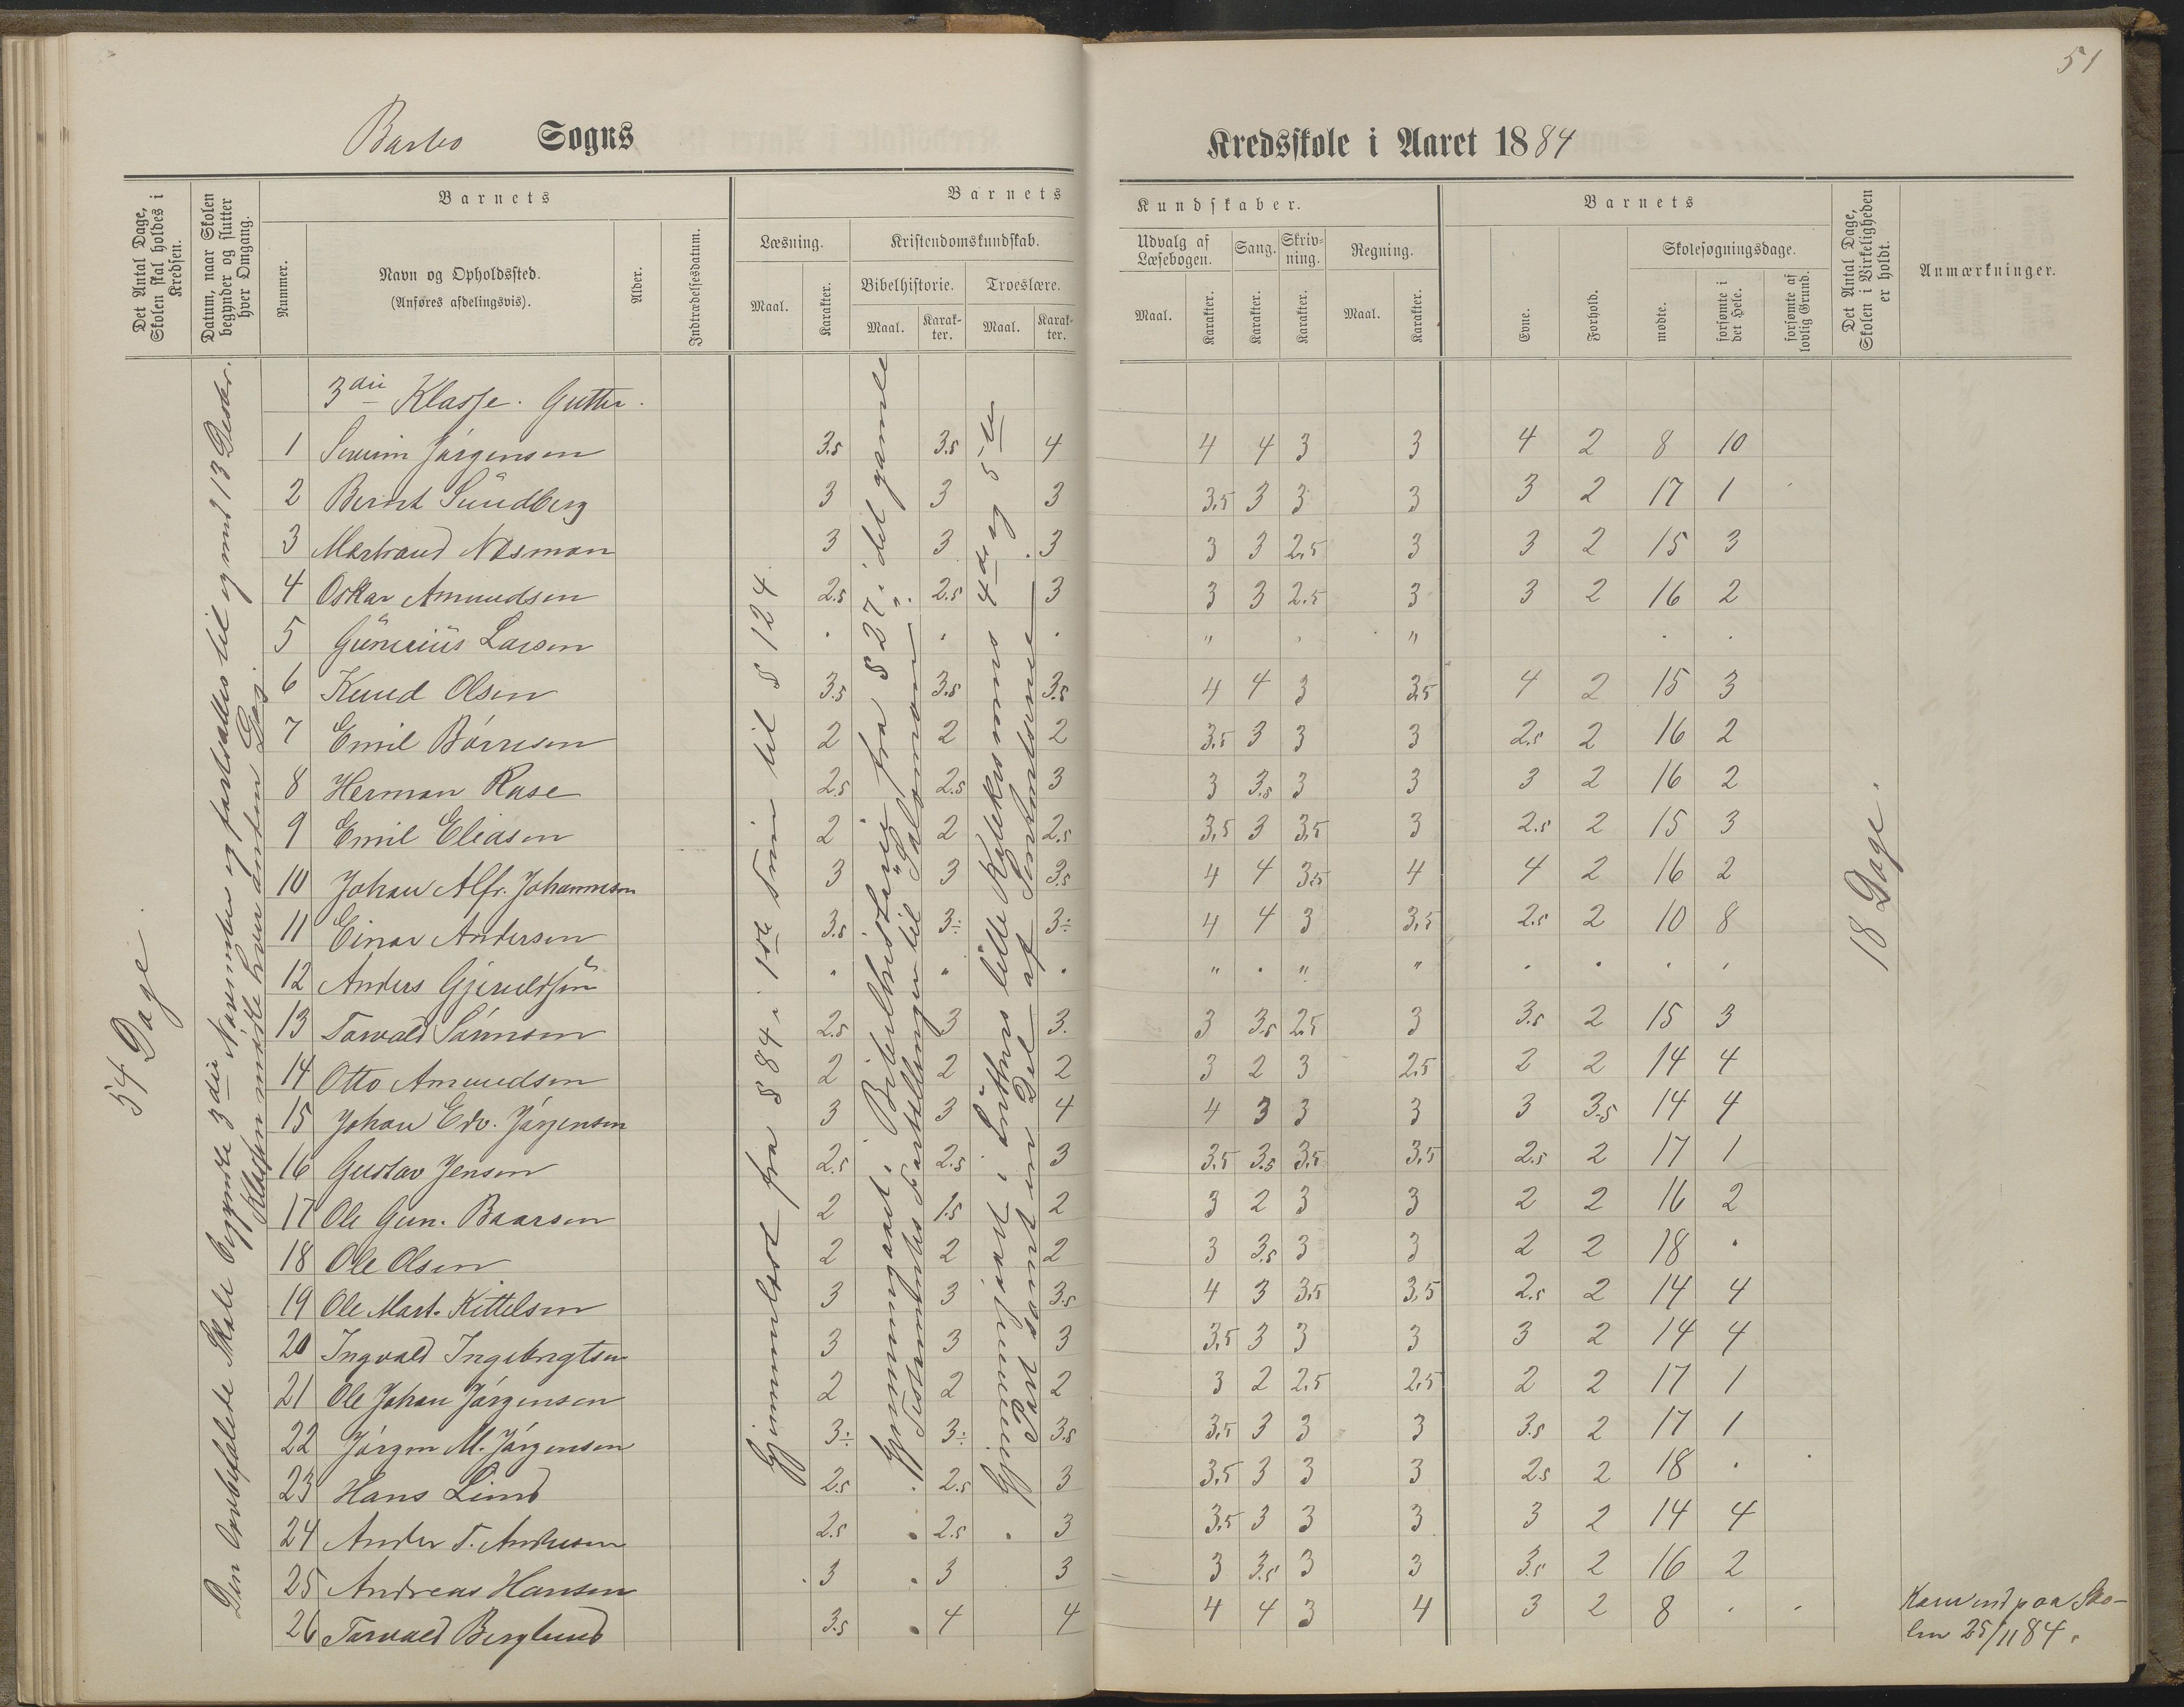 51
Barbo Sogns
Kredsskole i Aaret 1884
Det Antal Dage, Skolen skal holdes i Kredsen.
Datum, naar Skolen begynder og slutter hver Omgang.
Barnets
Nummer.
Navn og Opholdssted.
(Anføres afdelingsvis).
Alder.
Indtrædelsesdatum.
Barnets
Læsning.
Maal.
Karakter.
Kristendomskundskab.
Bibelhistorie.
Maal.
Karakter.
Troeslære.
Maal.
Karakter.
Kundskaber.
Udvalg af Læsebogen.
Maal.
Karakter.
Sang.
Karakter.
Skrivning.
Karakter.
Regning.
Maal.
Karakter.
Barnets
Evne.
Forhold.
Skolesøgningsdage.
mødte.
forsømte i det Hele.
forsømte af lovlig Grund.
Det Antal Dage, Skolen i Virkeligheden er holdt.
Anmærkninger.
54 Dage.
Den Skole begyndte 3die November og fortsattes til og med 13 Decbr.
Klassen mødte hver anden Dag.
Gjennemlæst fra § 84 i 1ste Trin til § 124
Gjennemgaaet i Bibelhistorie fra § 27 i det gamle
Testamentes Fortællinger til "Salomon".
Gjennemgaaet i Luthers lille Katekismus 4de og 5te
Part samt en Del af
18 Dage.
3die Klasse. Gutter.
1 Severin Jørgensen 3.5 3.5 4 4 4 3 3 4 2 8 10
2 Bernt Sundberg 3 3 3 3,5 3 3 3 3 2 17 1
3 Næsman 3 3 3 3 3 2,5 3 3 2 15 3
4 Oskar Amundsen 2.5 2.5 3 3 3 2.5 3 3 2 16 2
5 Larsen . . . " " "
6 Knud Olsen 3.5 3.5 3.5 4 4 3 3,5 4 2 15 3
7 Emil Børresen 2 2 2 3,5 3 3 3 2.5 2 16 2
8 Herman Rase 2.5 2.5 3 3 3.5 3 3 3 2 16 2
9 Emil Eliasen 2 2 2.5 3,5 3 3,5 3 2.5 2 15 3
10 Johan Alfr. Johannesen 3 3 3.5 4 4 3.5 4 4 2 16 2
11 Einar Andersen 3.5 3÷ 3÷ 4 4 3 3,5 2.5 2 10 8
12 Anders . " . " . " " . . . .
13 Torvald Sørensen 2.5 3 3. 3 3.5 2.5 3 3.5 2 15 3
14 Otto Amundsen 2 2 2 3 2 3 2.5 2 2 14 4
15 Johan Edv. Jørgensen 3 3 4 4 3 3 3 3 3.5 14 4
16 Gustav Jensen 2.5 2.5 3 3.5 3.5 3.5 3,5 2.5 2 17 1
17 Ole Gun. Baarsen 2 1.5 2 3 2 3 3 2 2 16 2
18 Ole Olsen 2 2 2 3 3.5 3 3 2 2 18 .
19 Ole Mart. Kittelsen 3 3 3.5 4 3 3,5 3,5 2.5 2 14 4
20 Ingvald Ingebregtsen 3 3 3 3,5 3 3 3 3 2 14 4
21 Ole Johan Jørgensen 2 2 2 3 2 2.5 2.5 2 2 17 1
22 Jørgen M. Jørgensen 3÷ 3÷ 3.5 3,5 3 3 3 3.5 2 17 1
23 Hans Lind 2.5 2.5 3 3,5 3 3 3 2.5 2 18 .
24 Anders T. Andersen 2.5 2.5 3 3,5 3 3 3 3 2 14 4
25 Andreas Hansen 3 3 3 3 3.5 3 3 3.5 2 16 2
26 Torvald Berglund 3.5 4 4 4 4 3 4 3 2 8 . . Kom ind paa Sko-
len 25/11 84.